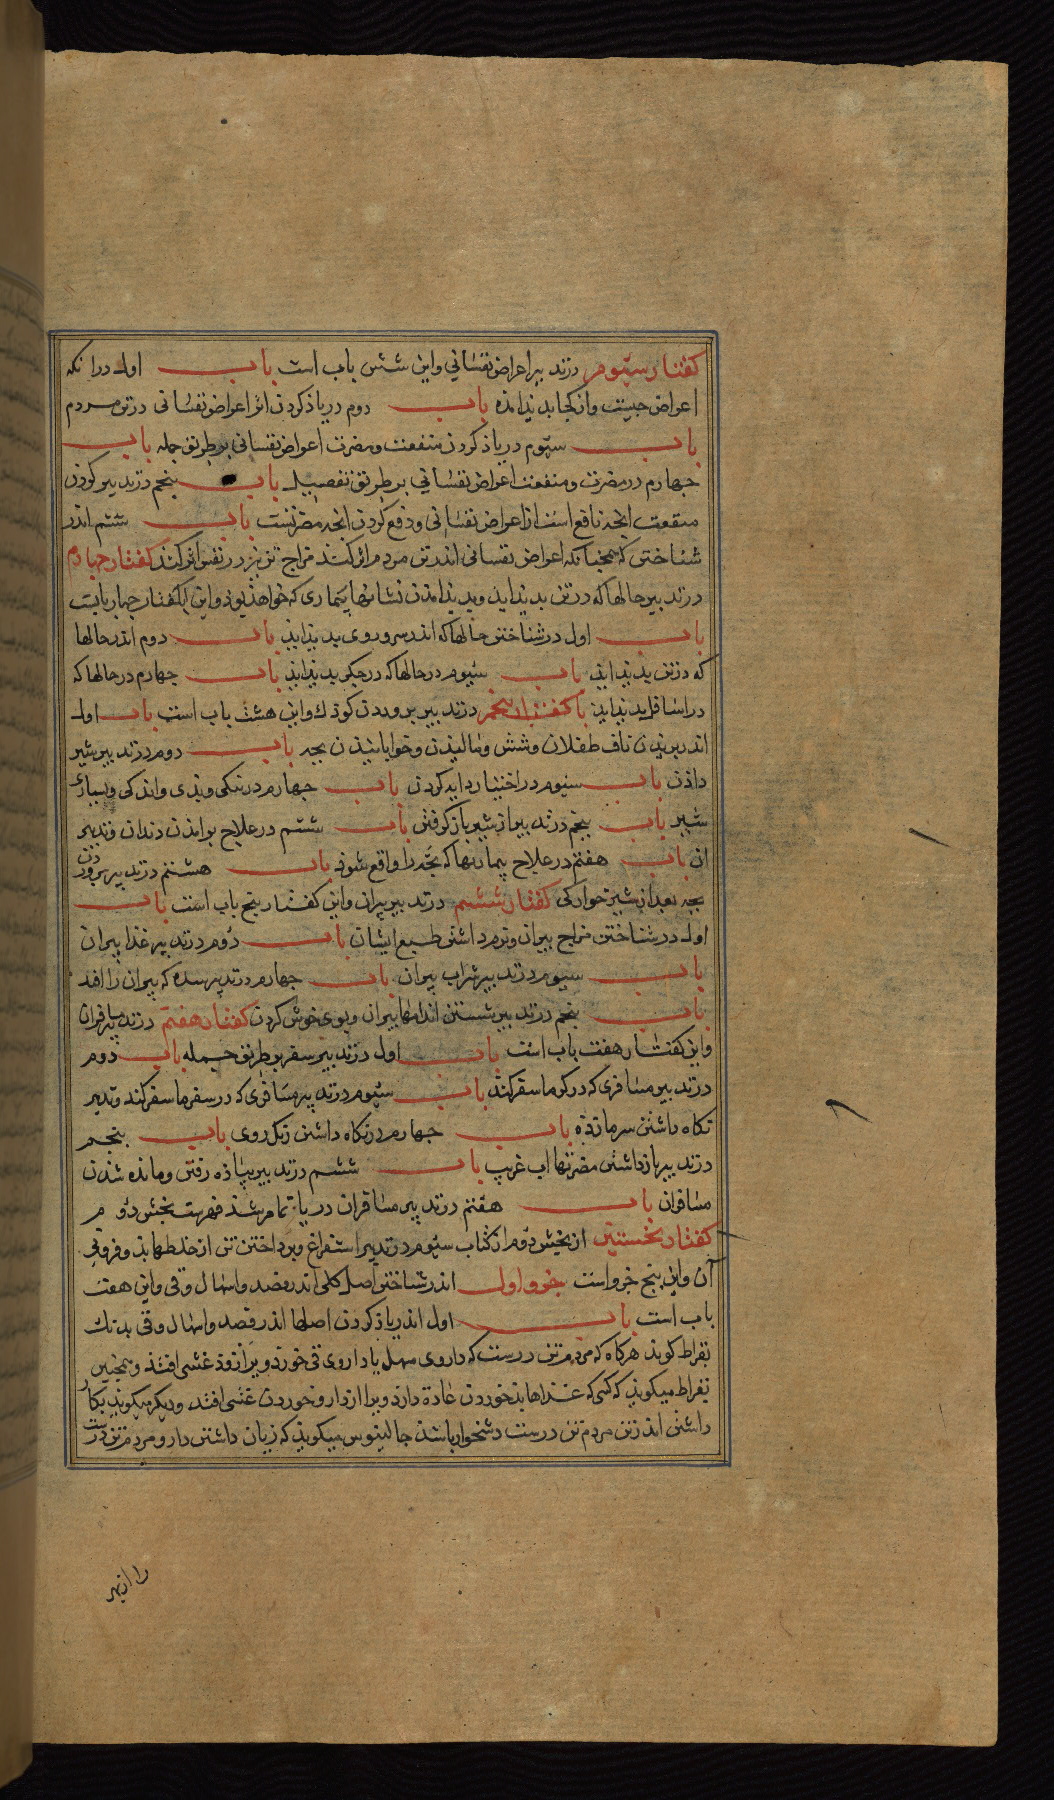 کفتار سیّوم درتدبیر اعراض نفسانی واین شش باب است باب اول دراٰنکه
اعراض چیست وازکجا پدیذ امذه باب دوم دریاذ کردن اثر اعراض نفسانی درتن مردم
باب سیّوم دریاذ کردن منفعت ومضرت اعراض نفسانی برطریق جمله باب
جهارم درمضرت ومنفعت اعراض نفسانی برطریق تفصیل باب پنجم درتدبیر کردن
منفعت انچه نافع است از اعراض نفسانی ودفع کردن انچه مضرتست باب ششم اندر
شناختن که همچنانکه اعراض نفسانی اندرتن مردم اثر کند مزاج تن نیز درنفس اثر کند کفتار جهارم
درتدبیر حالها که درتن پدیذ ایذ وپدیذ امذن نشانهاء بیماری که خواهذ بوذ واین کفتار جهار بابست
باب اول درشناختن حالها که اندر سروروی پدیذ ایذ باب دوم اندر حالها
که درتن پدیذ ایذ باب سیوم درحالها که درجکر پدیذ ایذ باب جهارم درحالها که
در پدیذ ایذ کفتار پنجم درتدبیر پروردن کوذک واین هشت باب است باب اول
اندر بریذن ناف طفلان وشش ومالیذن وخوابانیذن بچه باب دوم درتدبیر شیر
داذن باب سیوم دراختیار دایه کردن باب جهارم درتنکی وبدی واندکی وبسیاری
شیر باب پنجم درتدبیر از شیر بازکرفتن باب ششم درعلاج براندن دندان وتدبیر
ان باب هفتم درعلاج بیماریها که بچه را واقع شوذ باب هشتم درتدبیر پروردن
بچه بعد از شیرخوارکی کفتار ششم درتدبیر پیران واین کفتار پنج باب است باب
اول درشناختن مزاج پیران ونرم داشتن طبع ایشان باب دوم درتدبیر غذا پیران
باب سیوم درتدبیر شراب پیران باب جهارم درتدبیر سده که پیران را افتد
باب پنجم درتدبیر شستن اندامهاء پیران وبوی خوش کردن کفتار هفتم درتدبیر مسافران
واین کفتار هفت باب است باب اول درتدبیر سفر برطریق جمله باب دوم
درتدبیر مسافری که درکرما سفر کند باب سیوم درتدبیر مسافری که درسفر سرما سفر کند وتدبیر
نکاه داشتن سرمازده باب جهارم درنکاه داشتن رنک روی باب پنجم
درتدبیر بازداشتن مضرتهاء اب غریب باب ششم درتدبیر پیاذه رفتن ومانده شذن
مسافران باب هفتم درتدبیر مسافران دریا تمام شذ فهرست بخش دوم
کفتار نخستین ازبخش دوم ازکتاب سیوم درتدبیر استفراغ وپرداختن تن از خلطهاء بذ وفزونی
آن واین پنج جزو است جزو اول اندرشناختن اصل کلی اندر فصد واسهال وقی واین هفت
باب است باب اول اندر یاذ کردن اصلها اندر فصد واسهال وقی بدانک
بقراط کویذ هرکاه که مردم تن درست که داروی مسهل یا داروی قی خورد ویرا زوذ غشی افتذ وهمچنین
بقراط میکویذ که کسی که غذاهاء بذ خوردن عاده دارذ ویرا ازدارو خوردن غشی افتذ ودیکر میکویذ بکار
داشتن اندرتن مردم تن درست دشخوار باشذ جالینوس میکویذ که زیان داشتن دارو مردم تن درست
را ازبهر